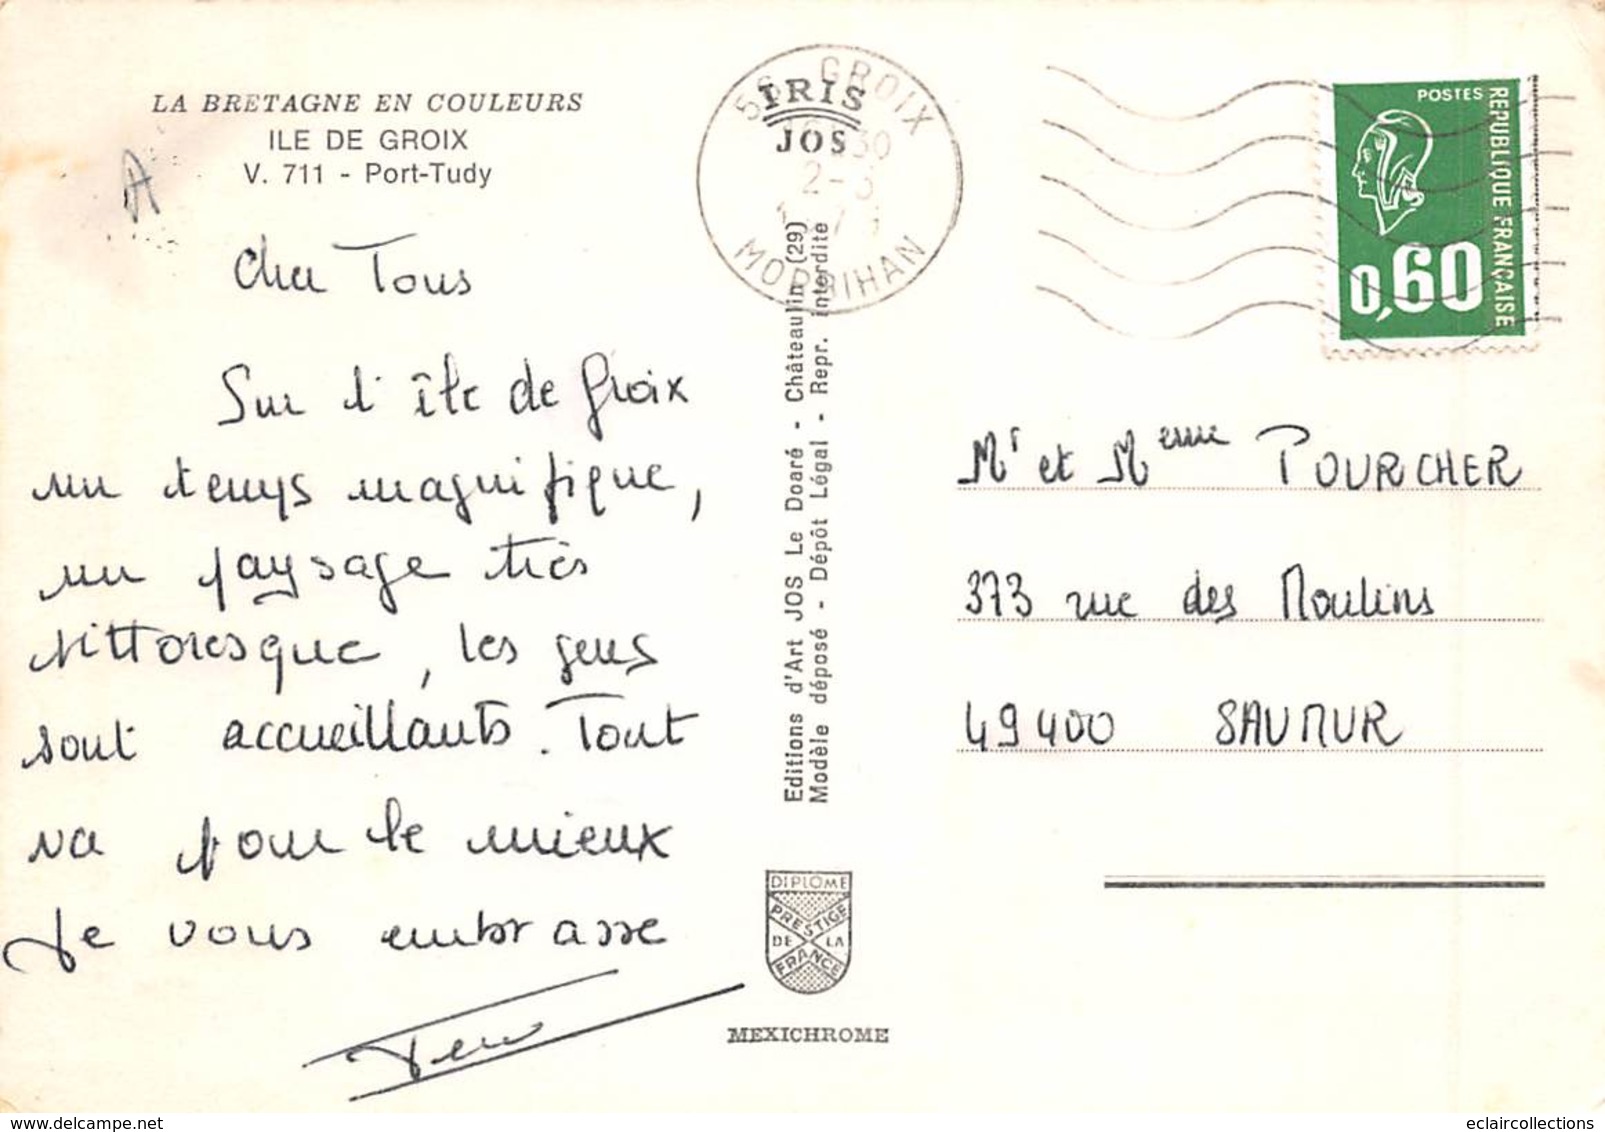 LA BRETAGNE EN COULEURS
ILE DE GROIX
V. 711 - Port-Tudy
A
Cher Tous
Sur l'île de Groix
un temps magnifique,
un paysage très
pittoresque, les gens
sont accueillants. Tout
va pour le mieux
Je vous embrasse
IRIS
JOS
56 GROIX
MORBIHAN
Editions d'Art JOS Le Doaré - Châteaulin (29)
Modèle déposé - Dépôt Légal - Repr. interdite
DIPLOME
PRESTIGE
DE LA
FRANCE
MEXICHROME
POSTES
REPUBLIQUE FRANÇAISE
0,60
Mr et Meme POURCHER
373 rue des Moulins
49400 SAUMUR
eclaircollections